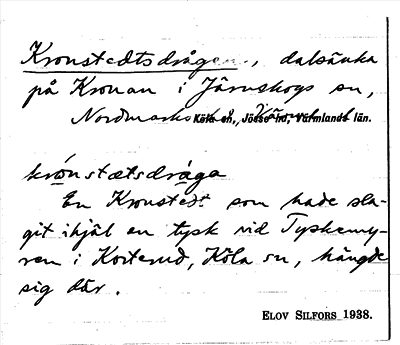 Kronstedtsdrågen, dalsänka
på Kronan i Järnskogs sn,
Nordmarks Köla sn, Jösse hd, Värmlands län.
krónstætsdråga
En Kronstedt som hade sla-
git ihjäl en tysk vid Tyskemy-
ren i Korterud, Köla sn, hängde
sig där.
ELOV SILFORS 1938.